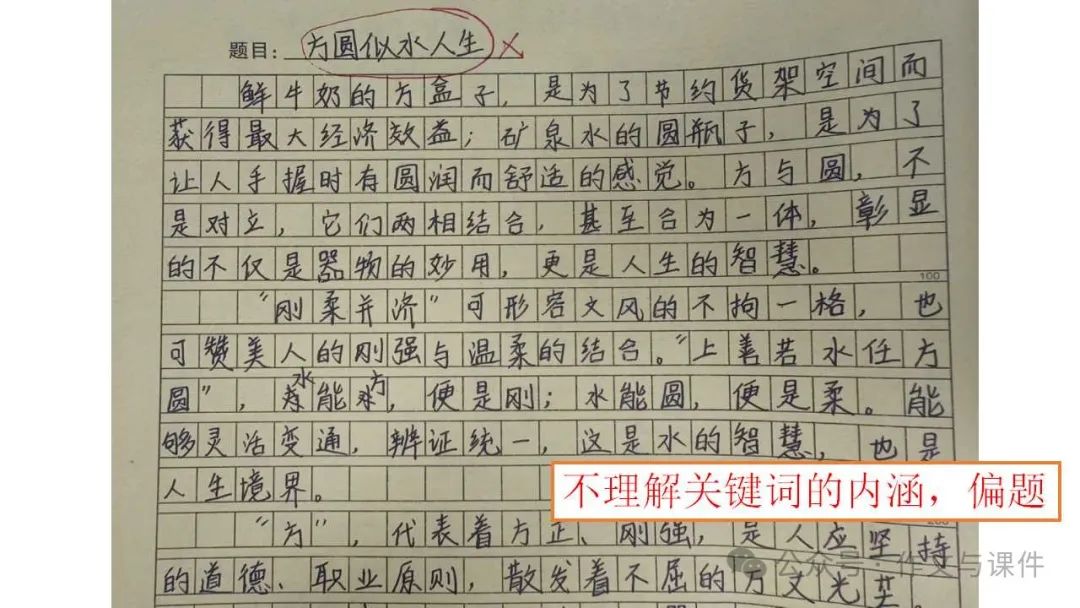 题目: 方圆似水人生
鲜牛奶的方盒子，是为了节约货架空间而
获得最大经济效益；矿泉水的圆瓶子，是为了
让人手握时有圆润而舒适的感觉。方与圆，不
是对立，它们两相结合，甚至合为一体，彰显
的不仅是器物的妙用，更是人生的智慧。
100
“刚柔并济”可形容文风的不拘一格，也
可赞美人的刚强与温柔的结合。“上善若水任方
圆”，水能方，便是刚；水能圆，便是柔。能
够灵活变通，辨证统一，这是水的智慧，也是
人生境界。
不理解关键词的内涵，偏题
“方”，代表着方正、刚强，是人应坚持
的道德、职业原则，散发着不屈的万丈光芒。
公众号·作文与课件